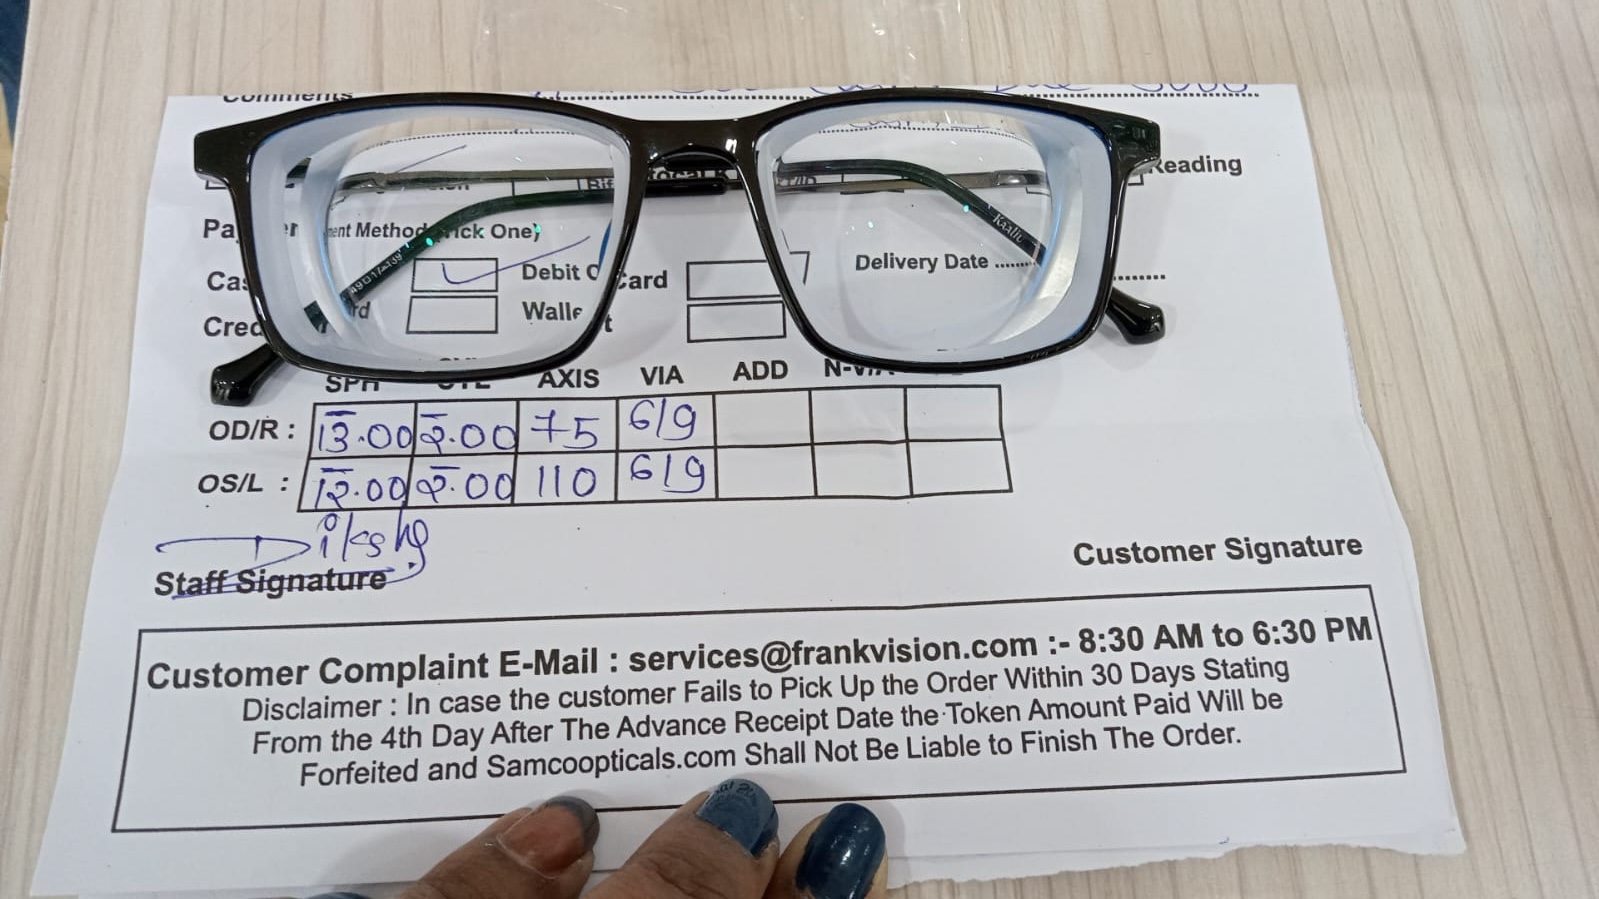 Comments
Reading
Payment Method (Tick One)
Debit Card
Delivery Date ........
Wallet
SPH CYL AXIS VIA ADD N-VIA
OD/R : 13.00 2.00 75 6/9
OS/L : 12.00 2.00 110 6/9
Staff Signature
Customer Signature
Customer Complaint E-Mail : services@frankvision.com :- 8:30 AM to 6:30 PM
Disclaimer : In case the customer Fails to Pick Up the Order Within 30 Days Stating
From the 4th Day After The Advance Receipt Date the Token Amount Paid Will be
Forfeited and Samcoopticals.com Shall Not Be Liable to Finish The Order.